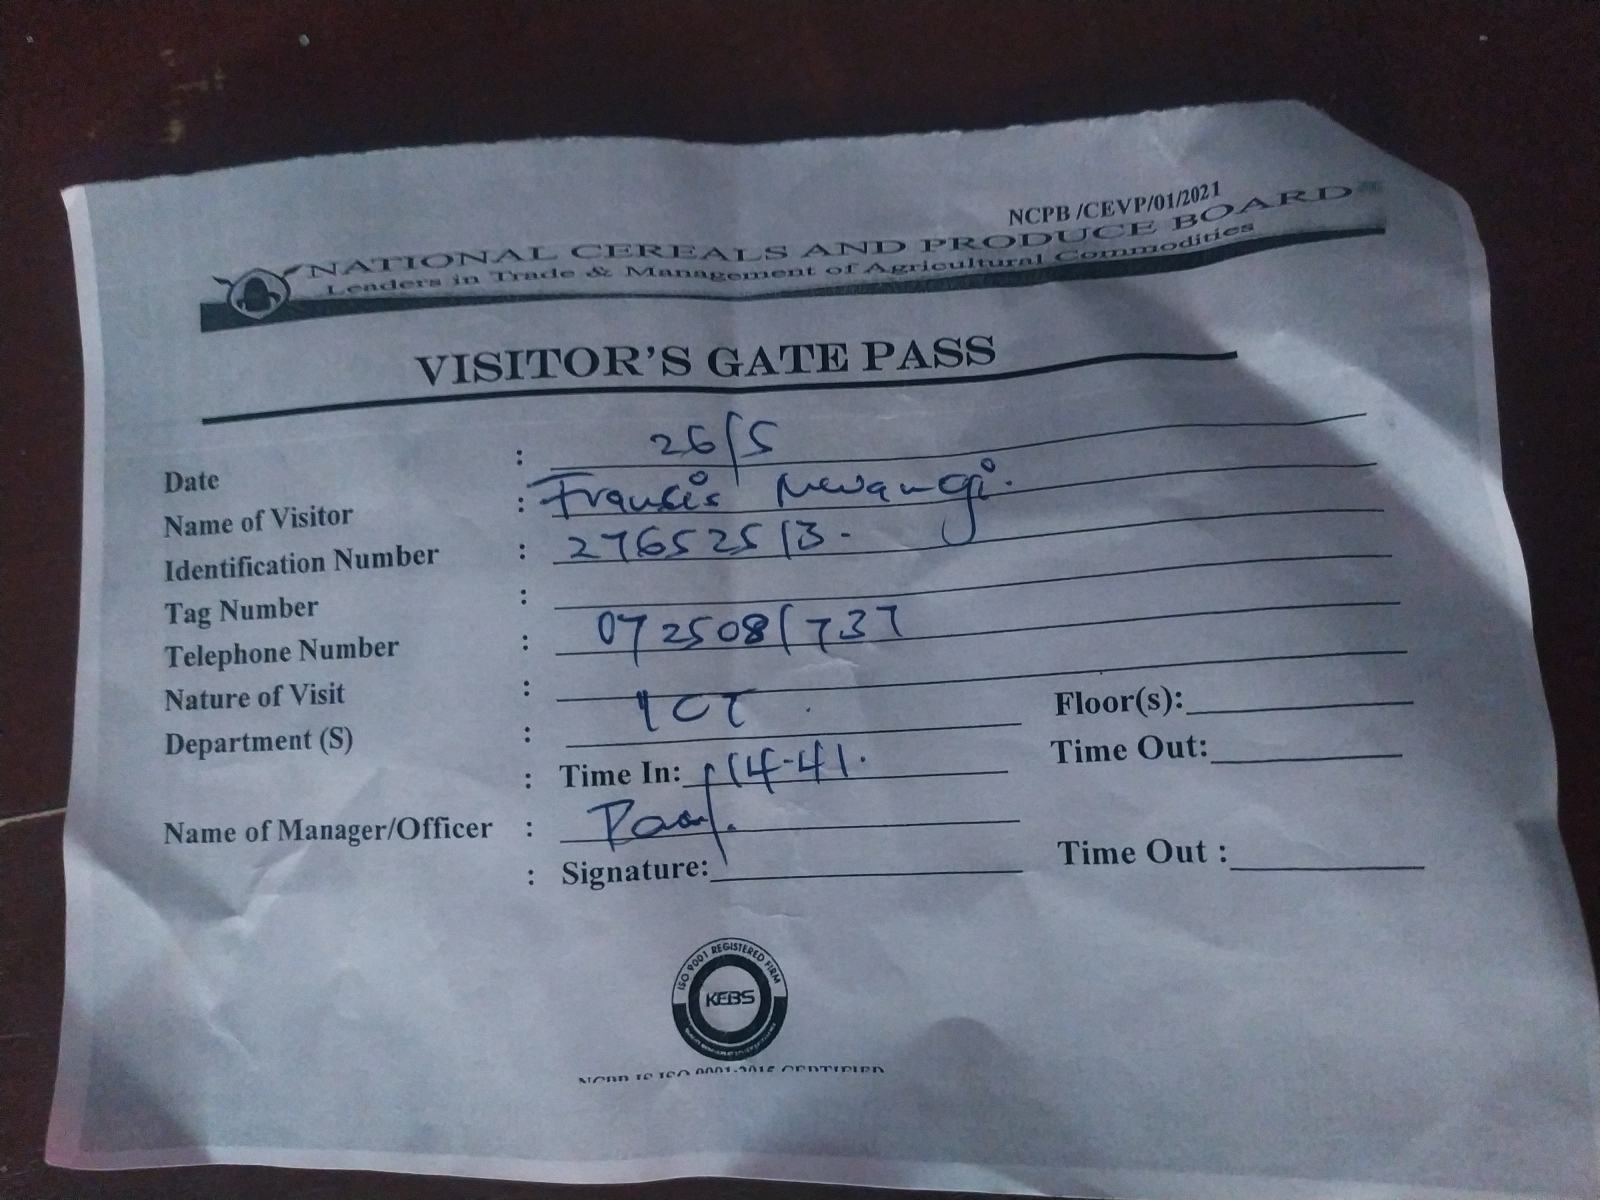 NCPB/CEVP/01/2021
NATIONAL CEREALS AND PRODUCE BOARD
Leaders in Trade & Management of Agricultural Commodities
VISITOR'S GATE PASS
Date : 26/5
Name of Visitor : Francis Mwangi.
Identification Number : 27652513.
Tag Number :
Telephone Number : 0725081737
Nature of Visit :
Department (S) : ICT. Floor(s):
: Time In: 14-41. Time Out:
Name of Manager/Officer :
: Signature: Time Out :
ISO 9001 REGISTERED FIRM
KEBS